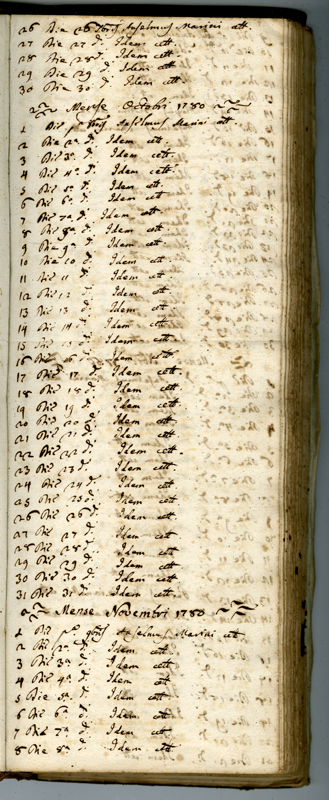 26 Die 26 7bris Anselmus Marini ett.
27 Die 27 d.° Idem ett.
28 Die 28 d.° Idem ett.
29 Die 29 d.° Idem ett.
30 Die 30 d.° Idem ett.
Mense Octobri 1780
1 Die p.ª Anselmus Marini ett.
2 Die 2ª d.° Idem ett.
3 Die 3ª d.° Idem ett.
4 Die 4ª d.° Idem ett.
5 Die 5ª d.° Idem ett.
6 Die 6ª d.° Idem ett.
7 Die 7ª d.° Idem ett.
8 Die 8ª d.° Idem ett.
9 Die 9ª d.° Idem ett.
10 Die 10 d.° Idem ett.
11 Die 11 d.° Idem ett.
12 Die 12 d.° Idem ett.
13 Die 13 d.° Idem ett.
14 Die 14 d.° Idem ett.
15 Die 15 d.° Idem ett.
16 Die 16 d.° Idem ett.
17 Die 17 d.° Idem ett.
18 Die 18 d.° Idem ett.
19 Die 19 d.° Idem ett.
20 Die 20 d.° Idem ett.
21 Die 21 d.° Idem ett.
22 Die 22 d.° Idem ett.
23 Die 23 d.° Idem ett.
24 Die 24 d.° Idem ett.
25 Die 25 d.° Idem ett.
26 Die 26 d.° Idem ett.
27 Die 27 d.° Idem ett.
28 Die 28 d.° Idem ett.
29 Die 29 d.° Idem ett.
30 Die 30 d.° Idem ett.
31 Die 31 d.° Idem ett.
Mense Novembri 1780
1 Die p.ª 9bris Anselmus Marini ett.
2 Die 2ª d.° Idem ett.
3 Die 3ª d.° Idem ett.
4 Die 4ª d.° Idem ett.
5 Die 5ª d.° Idem ett.
6 Die 6ª d.° Idem ett.
7 Die 7ª d.° Idem ett.
8 Die 8ª d.° Idem ett.